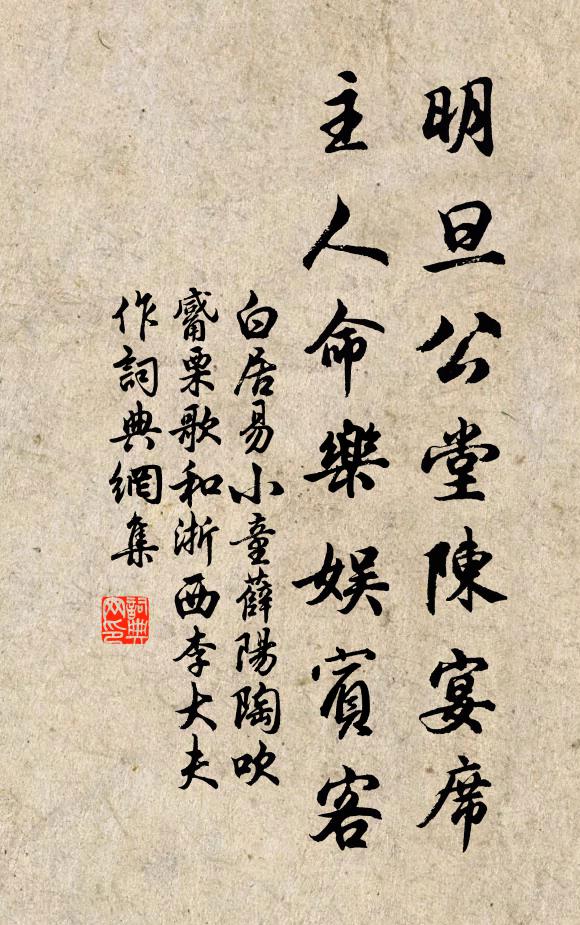 明旦公堂陳宴席
主人命樂娛賓客
白居易小童薛陽陶吹
觱栗歌和浙西李大夫
作詞典網集
詞典网印